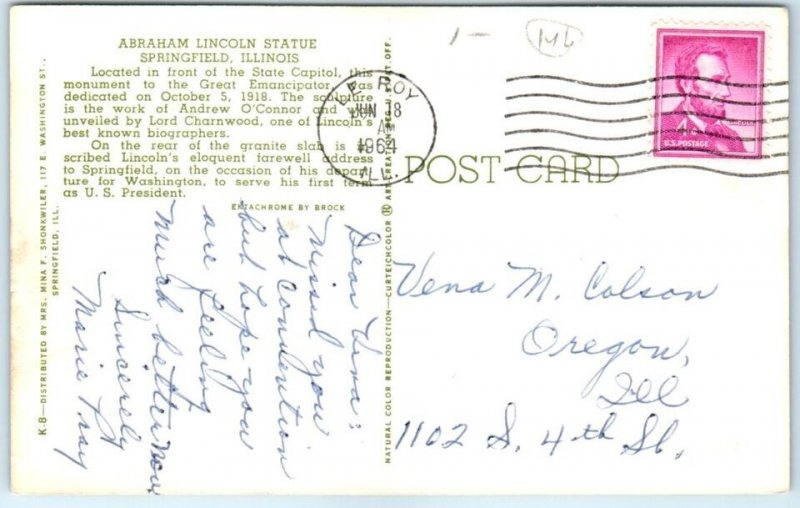 ABRAHAM LINCOLN STATUE
SPRINGFIELD, ILLINOIS
Located in front of the State Capitol, this
monument to the Great Emancipator was
dedicated on October 5, 1918. The sculpture
is the work of Andrew O'Connor and was
unveiled by Lord Charnwood, one of Lincoln's
best known biographers.
On the rear of the granite slab is in-
scribed Lincoln's eloquent farewell address
to Springfield, on the occasion of his depar-
ture for Washington, to serve his first term
as U. S. President.
EKTACHROME BY BROCK
K-8—DISTRIBUTED BY MRS. MINA F. SHONKWILER, 117 E. WASHINGTON ST.,
SPRINGFIELD, ILL.
Dear Vena:
Missed you
at convention
but hope you
are feeling
much better now
Sincerely
Marie Pray
NATURAL COLOR REPRODUCTION—CURTEICHCOLOR ® ART CREATION REG. U.S. PAT. OFF.
POST CARD
1-
LE ROY
JUN 18
AM
1964
ILL.
LINCOLN
U.S. POSTAGE
Vena M. Colson
Oregon,
Ill
1102 S. 4th St.